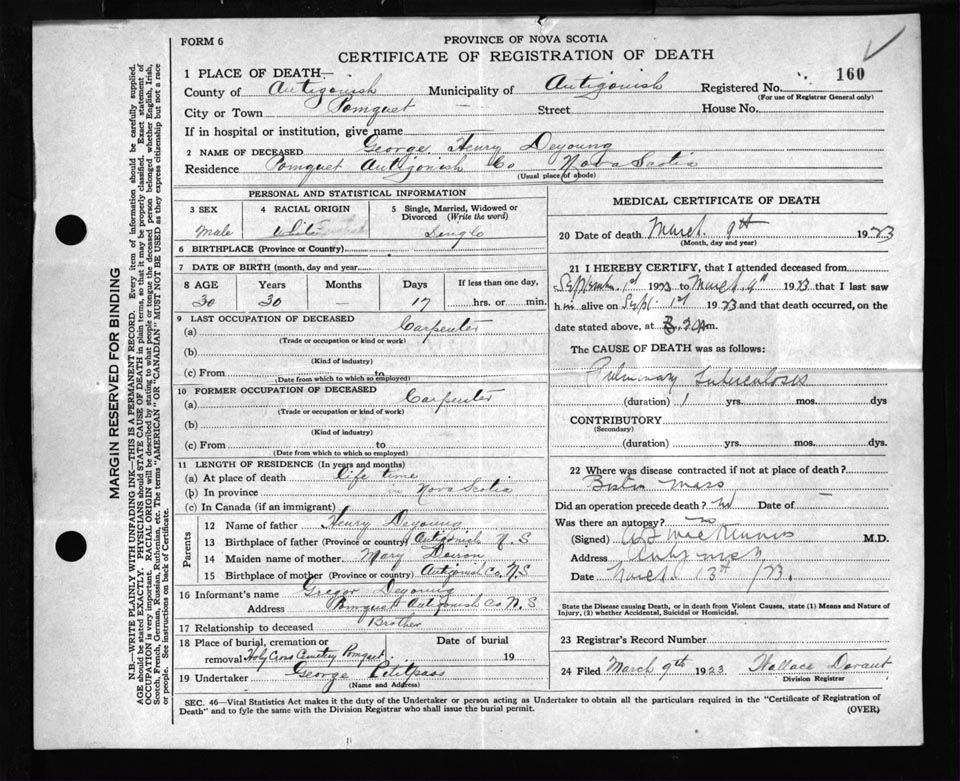 FORM 6
PROVINCE OF NOVA SCOTIA
CERTIFICATE OF REGISTRATION OF DEATH
160
1 PLACE OF DEATH—
County of Antigonish Municipality of Antigonish Registered No.
(For use of Registrar General only)
City or Town Pomquet — Street House No.
If in hospital or institution, give name
2 NAME OF DECEASED George Henry Deyoung
Residence Pomquet Antigonish Co Nova Scotia
(Usual place of abode)
PERSONAL AND STATISTICAL INFORMATION
3 SEX
Male
4 RACIAL ORIGIN
White
5 Single, Married, Widowed or Divorced (Write the word)
Single
6 BIRTHPLACE (Province or Country)
7 DATE OF BIRTH (month, day and year)
8 AGE Years Months Days If less than one day,
30 30 — 17 hrs. or min.
9 LAST OCCUPATION OF DECEASED
(a) Carpenter
(Trade or occupation or kind of work)
(b)
(Kind of industry)
(c) From to
(Date from which to which so employed)
10 FORMER OCCUPATION OF DECEASED
(a) Carpenter
(Trade or occupation or kind of work)
(b)
(Kind of industry)
(c) From to
(Date from which to which so employed)
11 LENGTH OF RESIDENCE (In years and months)
(a) At place of death life time
(b) In province in Nova Scotia
(c) In Canada (if an immigrant)
Parents
12 Name of father Henry Deyoung
13 Birthplace of father (Province or country) Antigonish N.S
14 Maiden name of mother Mary
15 Birthplace of mother (Province or country) Antigonish Co. N.S
16 Informant's name Gregor Deyoung
Address Pomquet Antigonish Co N.S
17 Relationship to deceased Brother
18 Place of burial, cremation or Date of burial
removal Holy Cross Cemetery Pomquet 19
19 Undertaker George Petitpas
(Name and Address)
MEDICAL CERTIFICATE OF DEATH
20 Date of death March 9th 1923
(Month, day and year)
21 I HEREBY CERTIFY, that I attended deceased from
September 1st 1923 to March 9th 1923 that I last saw
him alive on Sept 1st 1923 and that death occurred, on the
date stated above, at m.
The CAUSE OF DEATH was as follows:
Pulmonary Tuberculosis
(duration) 1 yrs. mos. dys
CONTRIBUTORY
(Secondary)
(duration) yrs. mos. dys.
22 Where was disease contracted if not at place of death?
Boston Mass
Did an operation precede death? no Date of
Was there an autopsy? no
(Signed) M.D.
Address Antigonish
Date March 13th /23.
State the Disease causing Death, or in death from Violent Causes, state (1) Means and Nature of
Injury, (2) whether Accidental, Suicidal or Homicidal.
23 Registrar's Record Number
24 Filed March 9th 1923 Wallace
Division Registrar
SEC. 46—Vital Statistics Act makes it the duty of the Undertaker or person acting as Undertaker to obtain all the particulars required in the "Certificate of Registration of
Death" and to fyle the same with the Division Registrar who shall issue the burial permit. (OVER)
MARGIN RESERVED FOR BINDING
N.B.—WRITE PLAINLY WITH UNFADING INK—THIS IS A PERMANENT RECORD. Every item of information should be carefully supplied.
AGE should be stated EXACTLY. PHYSICIANS should STATE CAUSE OF DEATH in plain terms, so that it may be properly classified. Exact statement of
OCCUPATION is very important. RACIAL ORIGIN will be described by stating to what people or tongue the deceased person belonged whether English, Irish,
Scotch, French, German, Russian, Ruthenian, etc. The terms "AMERICAN" OR "CANADIAN" MUST NOT BE USED as they express citizenship but not a race
or people. See instructions on back of Certificate.